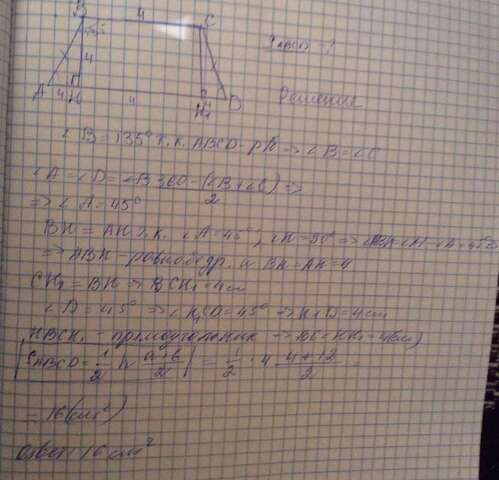 B 4 C
4
A 4 H 4 H₁ D
S ABCD = ?
Решение
∠B = 135° т.к. ABCD - р/б => ∠B = ∠C
∠A = ∠D = 360 - (∠B + ∠C) / 2 =>
=> ∠A = 45°
BH = AH т.к. ∠A = 45°, ∠H = 90° =>
=> ABH - равнобедр. и BH = AH = 4
CH₁ = BH => CH₁ = 4 см
∠D = 45° => ∠H₁CD = 45° => H₁D = 4 см
HBCH₁ - прямоугольник => BC = HH₁ = 4 (см)
S ABCD = 1/2 h a+b/2 = 1/2 · 4 4+12/2 =
= 16 (см²)
Ответ: 16 см²